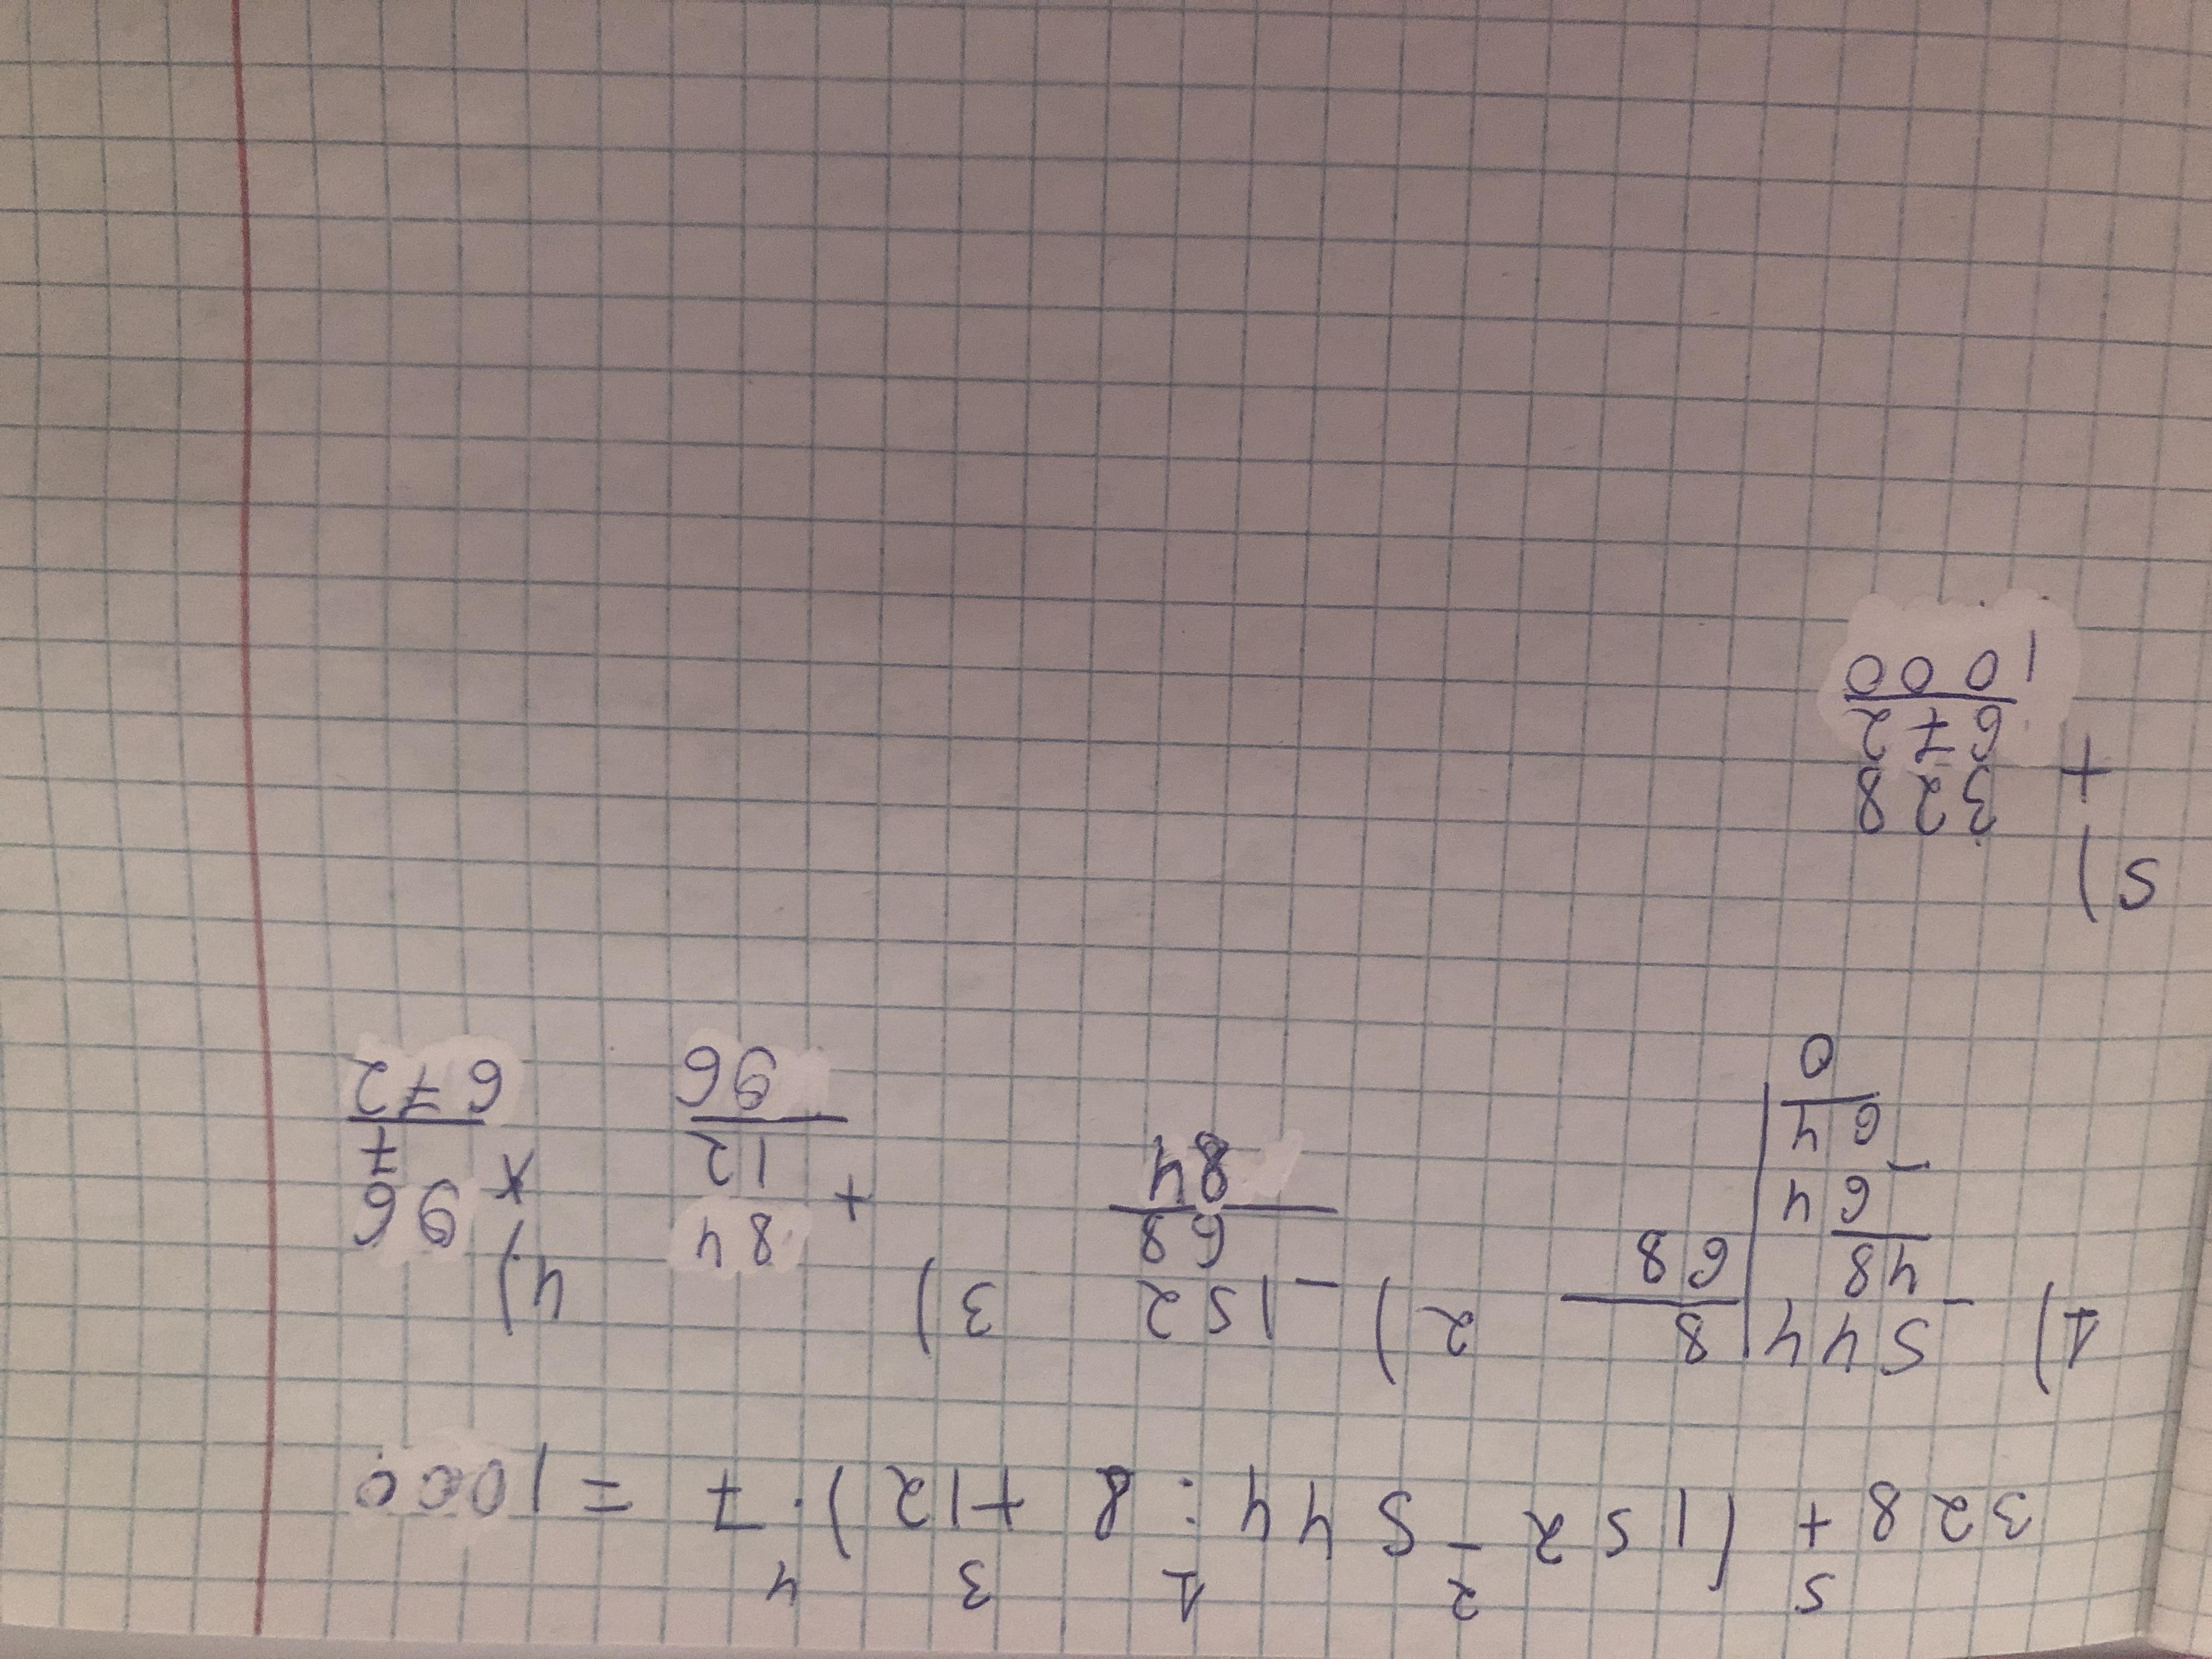 5 2 1 3 4
328 + (152 - 544 : 8 + 12) · 7 = 1000
1) - 544 | 8 2) - 152 3) + 84 4) × 96
48 68 68 12 7
- 64 84 96 672
64
0
5)
+ 328
672
1000